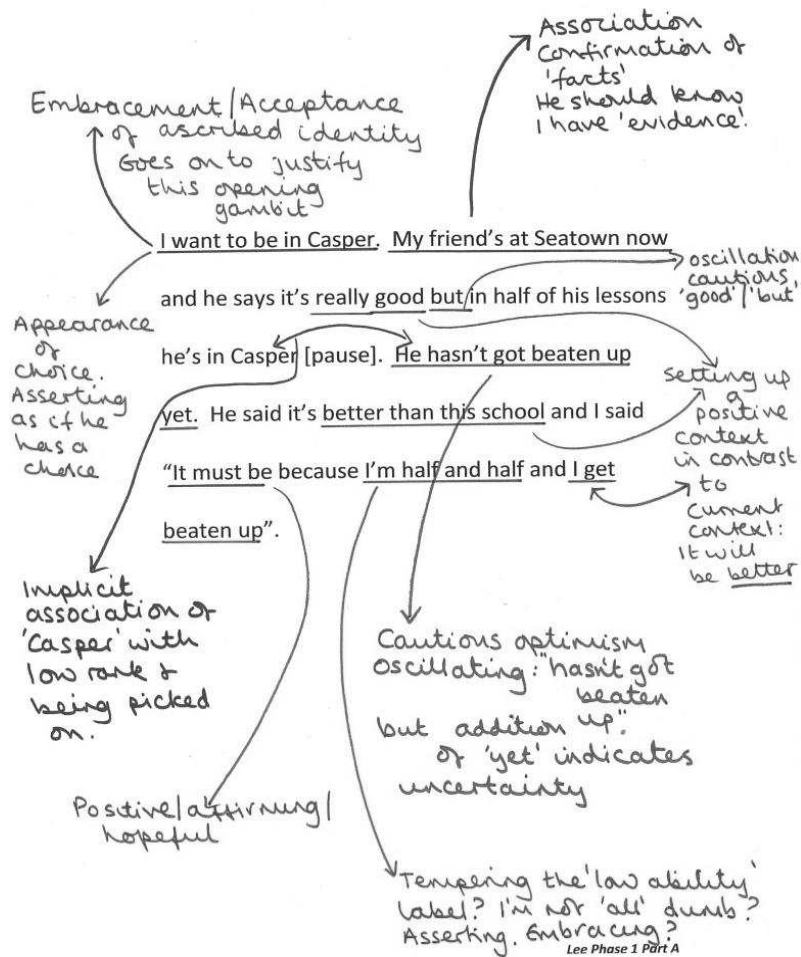 Association
Confirmation of
'facts'
He should know
I have 'evidence'.
Embracement/Acceptance
of ascribed identity
Goes on to justify
this opening
gambit
I want to be in Casper. My friend's at Seatown now
and he says it's really good but in half of his lessons
he's in Casper [pause]. He hasn't got beaten up
yet. He said it's better than this school and I said
"It must be because I'm half and half and I get
beaten up".
oscillation
cautious,
'good'/'but'
Appearance
of
choice.
Asserting
as if he
has a
choice
Setting up
a
positive
context
in contrast
to
current
context:
It will
be better
Implicit
association of
'Casper' with
low rank &
being picked
on.
Cautious optimism
oscillating: "hasn't got
beaten
up".
but addition
of 'yet' indicates
uncertainty
Positive/affirming/
hopeful
Tempering the 'low ability'
label? I'm not 'all' dumb?
Asserting. Embracing?
Lee Phase 1 Part A